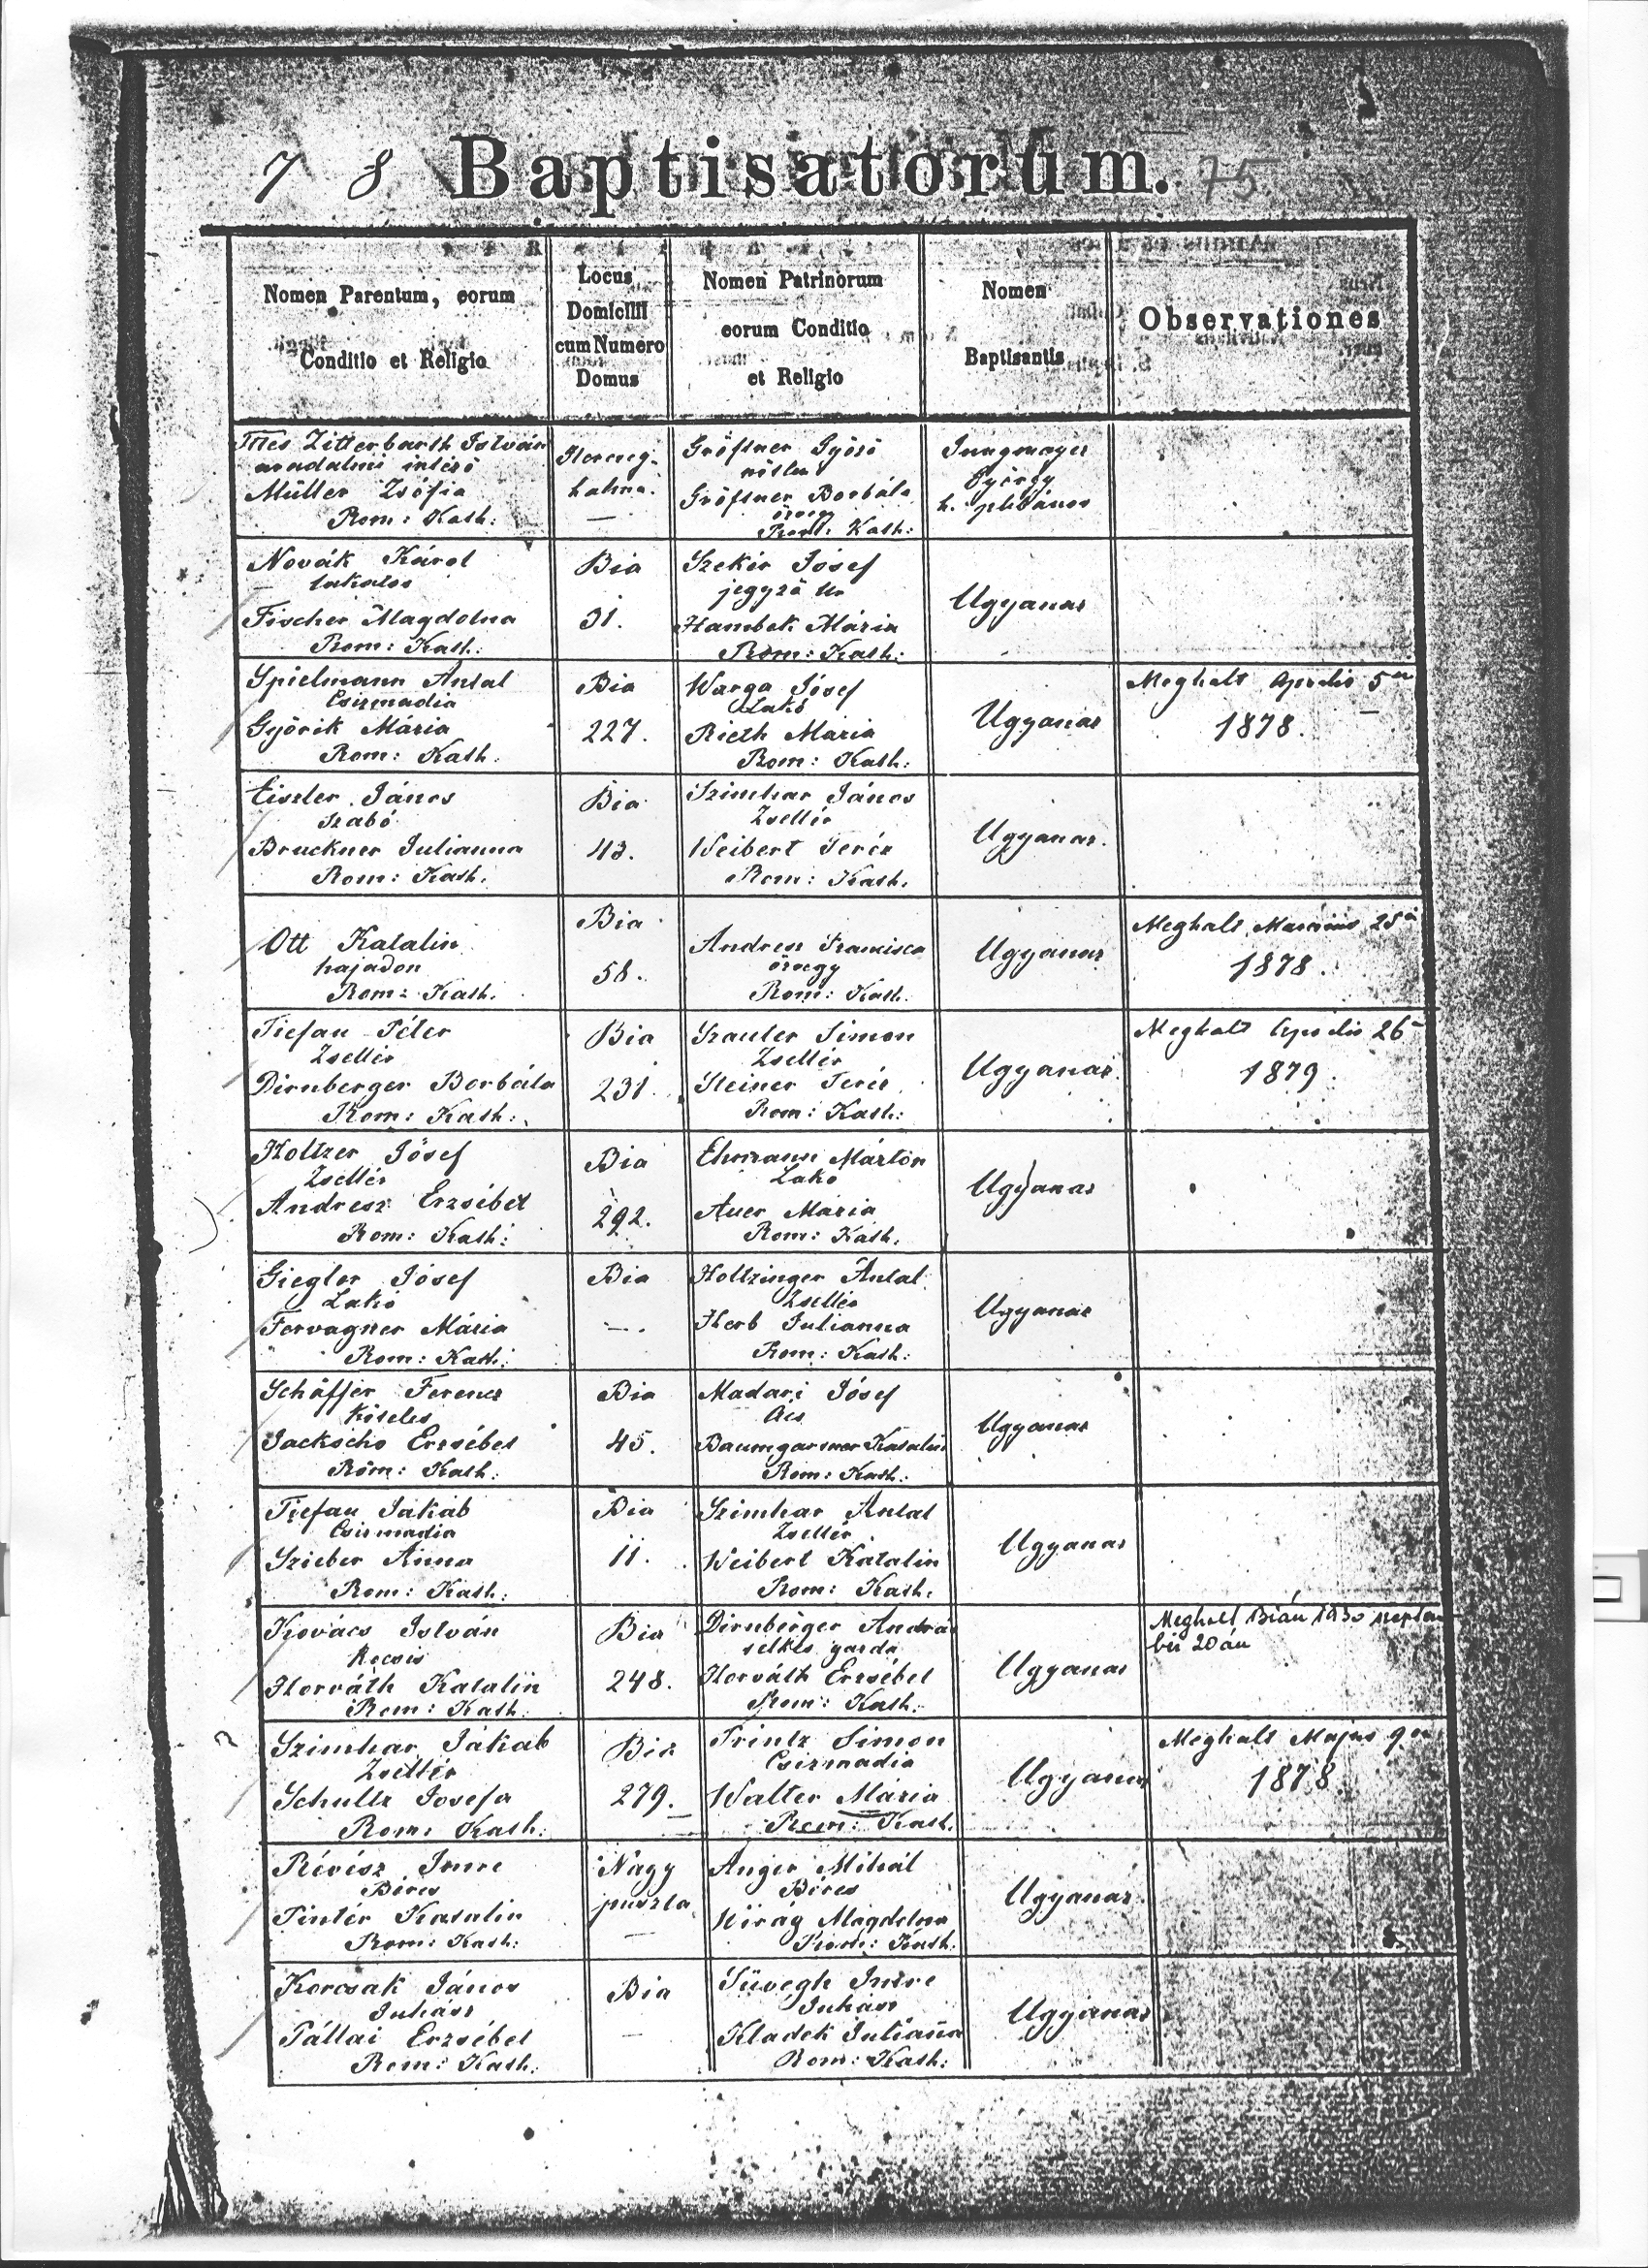 7 8 Baptisatorum. 75
Nomen Parentum, eorum
Conditio et Religio
Locus
Domicilii
cum Numero
Domus
Nomen Patrinorum
eorum Conditio
et Religio
Nomen
Baptisantis
Observationes
Zitterbarth István
uradalmi intéző
Müller Zsófia
Rom: Kath:
Herczeg-
halma.
—
Győző
nőtlen
Borbála
özvegy
Rom: Kath:
Jungmayer
György
h. plébános
Novák Károl
lakatos
Fischer Magdolna
Rom: Kath:
Bia
31.
Szekér Jósef
jegyző
Hambek Mária
Rom: Kath:
Ugyanaz
Spielmann Antal
Csizmadia
Györik Mária
Rom: Kath.
Bia
227.
Warga Jósef
Lakó
Rieth Mária
Rom: Kath:
Ugyanaz
Meghalt Aprilis 5én
1878.
Eiszler János
Szabó
Bruckner Julianna
Rom: Kath.
Bia
43.
Szimhar János
Zsellér
Weibert Teréz
Rom: Kath.
Ugyanaz.
Ott Katalin
hajadon
Rom: Kath.
Bia
58.
Andresz Francisca
özvegy
Rom: Kath.
Ugyanaz
Meghalt Marczius
1878.
Tiefau Péter
Zsellér
Dirnberger Borbála
Rom: Kath:
Bia
231.
Szauter Simon
Zsellér
Steiner Teréz
Rom: Kath:
Ugyanaz.
Meghalt Aprilis 26
1879.
Holtzer Jósef
Zsellér
Andresz Erzsébet
Rom: Kath:
Bia
292.
Ehmann Márton
Lakó
Auer Mária
Rom: Kath.
Ugyanaz
Giegler Jósef
Lakó
Fervagner Mária
Rom: Kath:
Bia
—.
Holtzinger Antal
Zsellér
Herb Julianna
Rom: Kath:
Ugyanaz
Schäffer Ferencz
Köteles
Jackscho Erzsébet
Rom: Kath.
Bia
45.
Madari Jósef
Ács
Baumgartner Katalin
Rom: Kath:
Ugyanaz
Tiefau Jakab
Csizmadia
Szieber Anna
Rom: Kath.
Bia
11.
Szimhar Antal
Zsellér
Weibert Katalin
Rom: Kath.
Ugyanaz
Kovács István
Kocsis
Horváth Katalin
Rom: Kath.
Bia
248.
Dirnberger András
telkes gazda
Horváth Erzsébet
Rom: Kath:
Ugyanaz
Meghalt Bián 1930 szeptem
ber 20án
Szimhar Jakab
Zsellér
Schultz Josefa
Rom: Kath:
Bia
279.
Printz Simon
Csizmadia
Walter Mária
Rom: Kath.
Ugyanaz
Meghalt Majus 9én
1878.
Révész Imre
Béres
Pintér Katalin
Rom: Kath:
Nagy
puszta
—
Anger Mihál
Béres
Virág Magdolna
Rom: Kath.
Ugyanaz
Korcsak János
Juhász
Pállai Erzsébet
Rom: Kath:
Bia
—
Süvegh Imre
Juhász
Kladek Julianna
Rom: Kath:
Ugyanaz